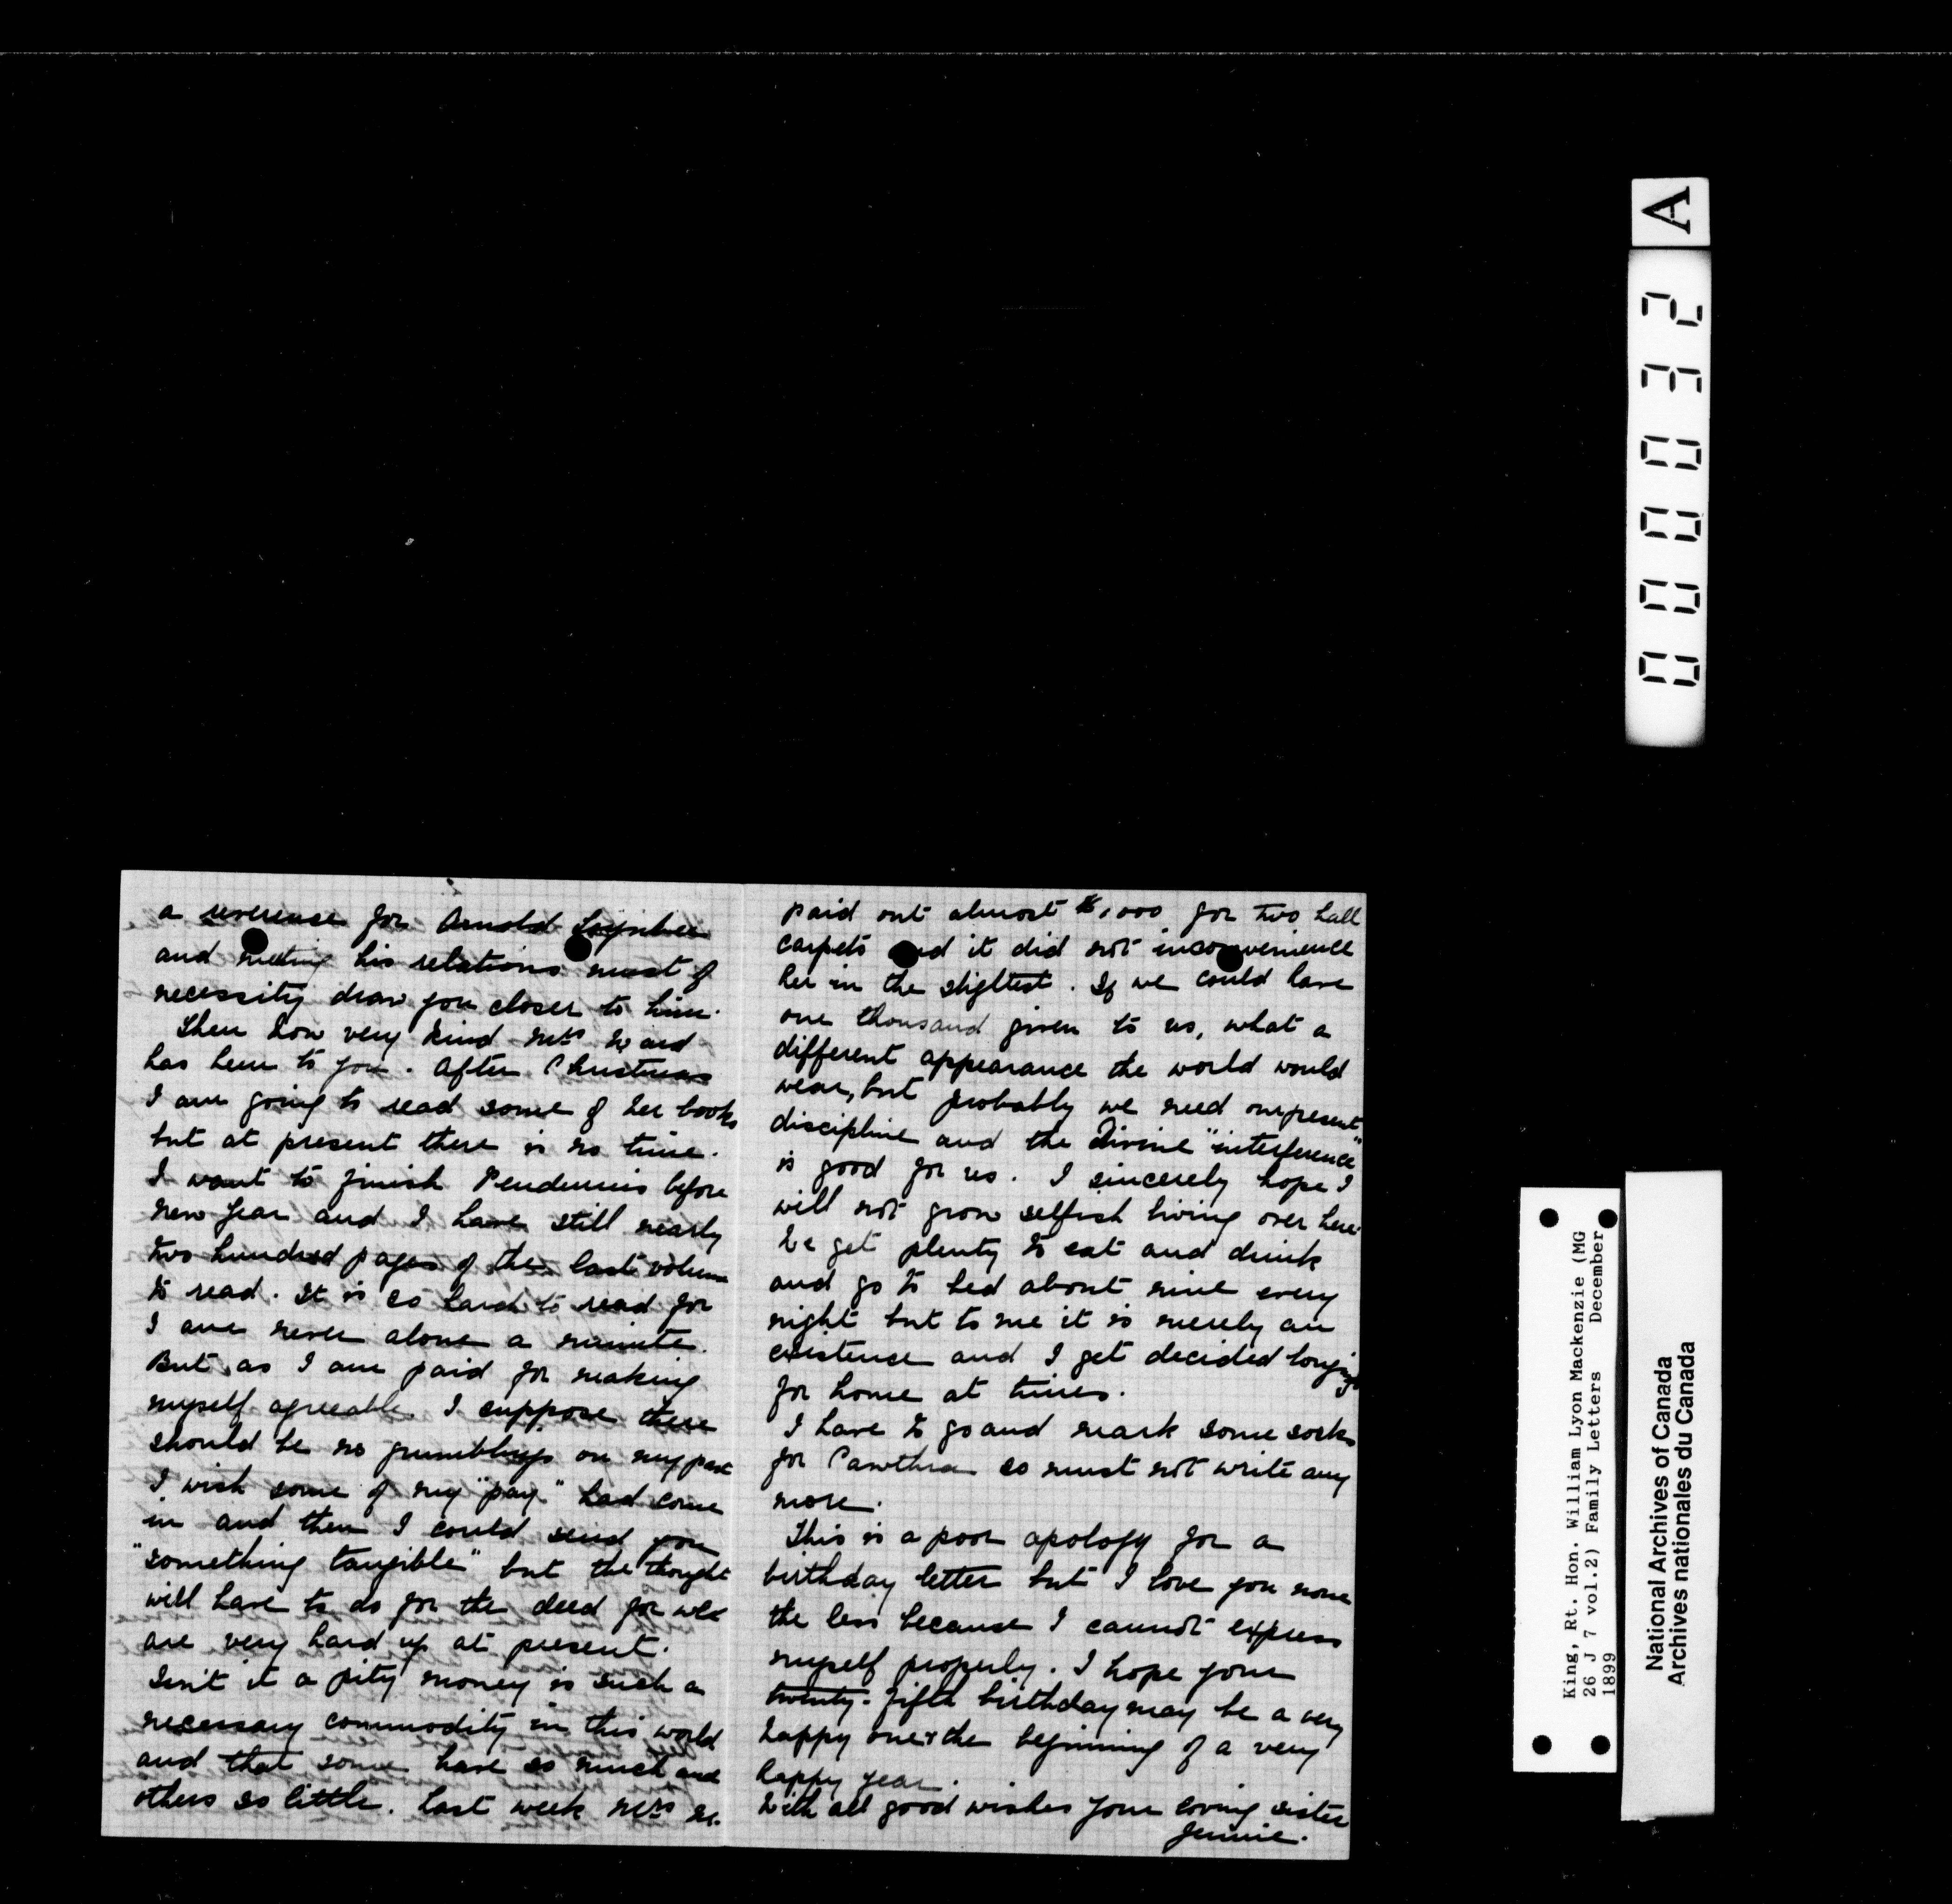 a reverence for Arnold Toynbee
and meeting his relations must of
necessity draw you closer to him.
Then how very kind Mrs Ward
has been to you. After Christmas
I am going to read some of her books
but at present there is no time.
I want to finish Pendennis before
New Year and I have still nearly
two hundred pages of the last volume
to read. It is so hard to read for
I am never alone a minute.
But as I am paid for making
myself agreeable I suppose there
should be no grumblings on my part
I wish some of my "pay" had come
in and then I could send you
"something tangible" but the thought
will have to do for the deed for we
are very hard up at present.
Isn't it a pity money is such a
necessary commodity in this world
and that some have so much and
others so little. Last week Mrs M.
paid out almost $1,000 for two hall
carpets and it did not inconvenience
her in the slightest. If we could have
one thousand given to us, what a
different appearance the world would
wear, but probably we need our present
discipline and the Divine "interference"
is good for us. I sincerely hope I
will not grow selfish living over here.
We get plenty to eat and drink
and go to bed about nine every
night but to me it is merely an
existence and I get decided longings
for home at times.
I have to go and mark some socks
for Cawthra so must not write any
more.
This is a poor apology for a
birthday letter but I love you none
the less because I cannot express
myself properly. I hope your
twenty-fifth birthday may be a very
happy one & the beginning of a very
happy year.
With all good wishes your loving sister
Jennie.
A
000032
King, Rt. Hon. William Lyon Mackenzie (MG
26 J 7 vol.2) Family Letters December
1899
National Archives of Canada
Archives nationales du Canada